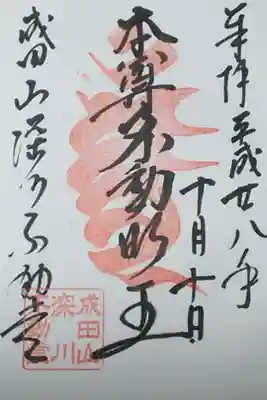 奉拝 平成廿八年
十月十日
本尊不動明王
成田山深川不動堂
成田山
深川
不動堂